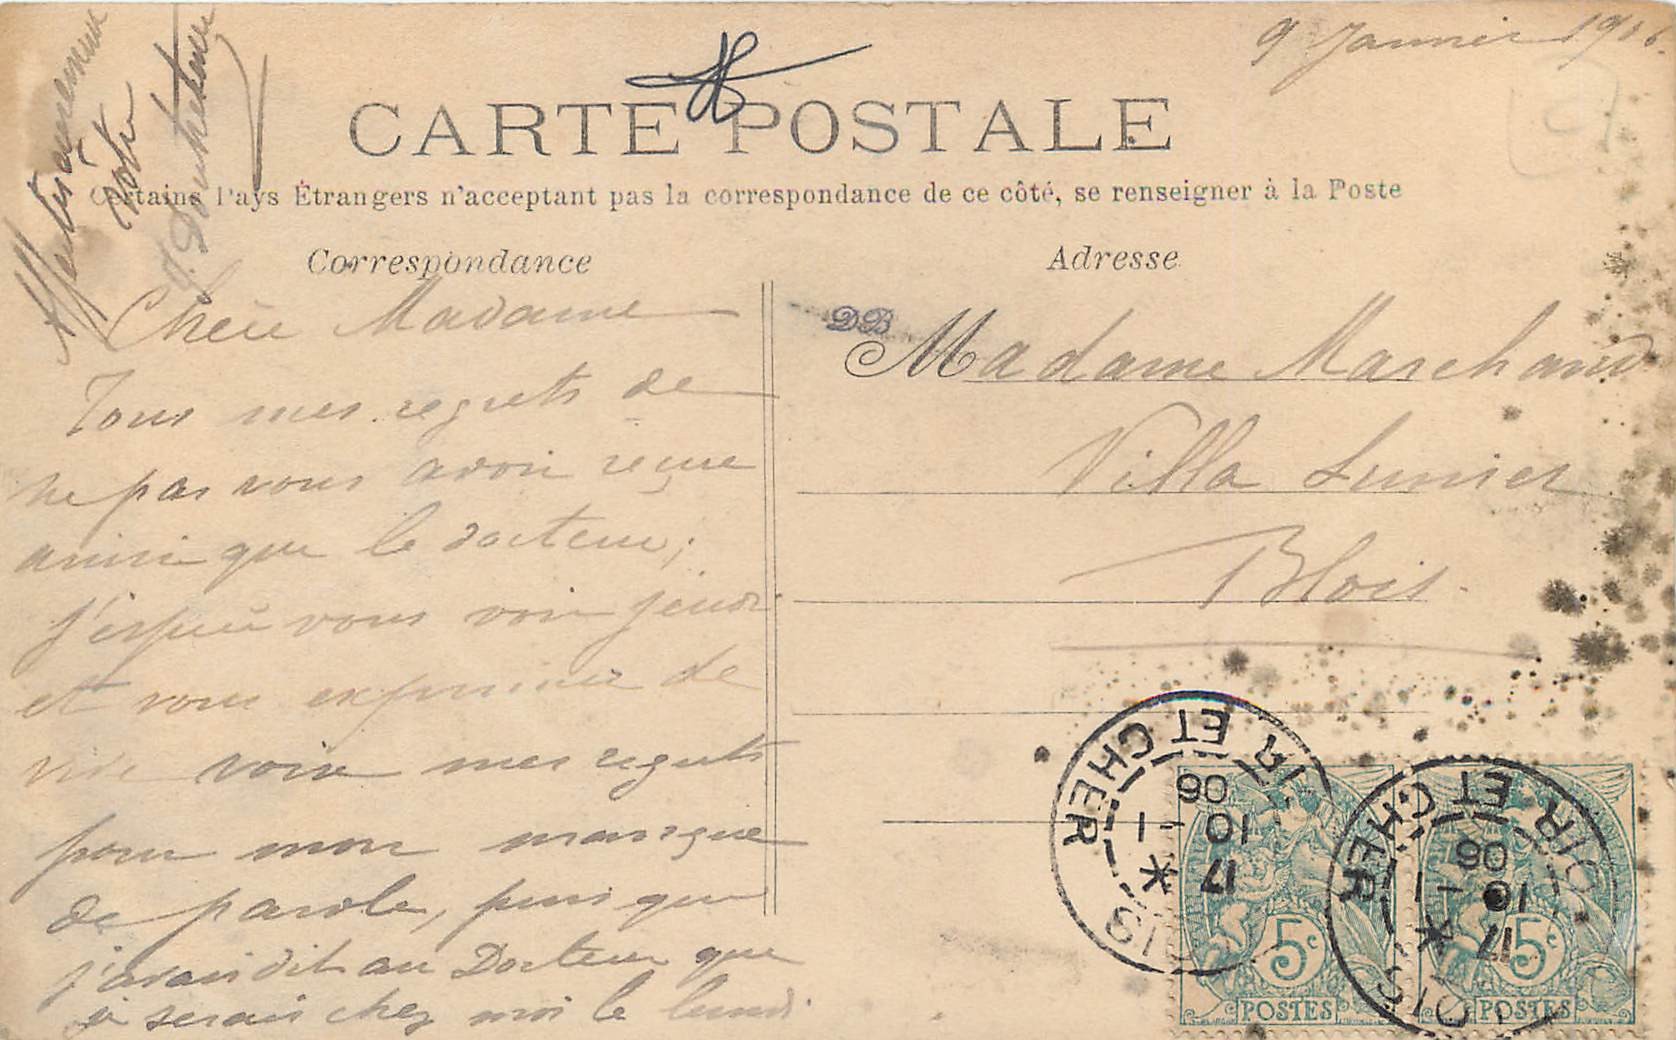 9 Janvier 1906.
CARTE POSTALE
Certains Pays Étrangers n'acceptant pas la correspondance de ce côté, se renseigner à la Poste
Correspondance
Chère Madame
Tous mes regrets de
ne pas vous avoir reçue
ainsi que le docteur;
j'espère vous voir jeudi
et vous exprimer de
vive voix mes regrets
pour mon manque
de parole, puis que
j'avais dit au Docteur que
je serais chez moi le lundi
Affectueusement
Vôtre
Adresse
DB
Madame Marchand
Villa Lunier
Blois.
LOIR ET CHER
17 *
10 - 1
06
BLOIS
LOIR ET CHER
17 *
10 - 1
06
5c
POSTES
5c
POSTES